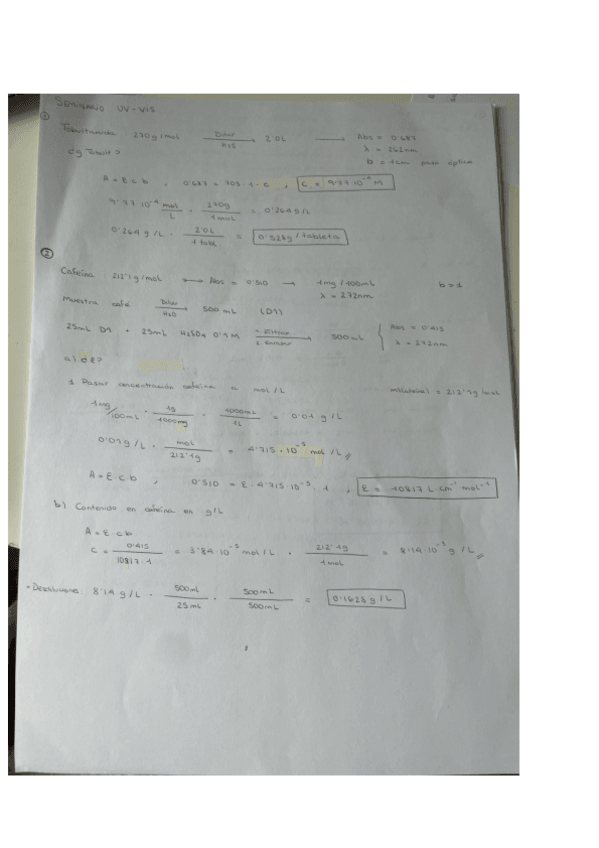 SEMINARIO UV-VIS
①
Tolbutamida 270g/mol Diluir / H2O → 2'0L → Abs = 0'687
λ = 262nm
b = 1cm paso óptico
A = ε.c.b , 0'687 = 703.1.c , C = 9'77.10⁻⁴ M
9'77.10⁻⁴ mol/L . 270g / 1mol = 0'264 g/L
0'264 g/L . 2'0L / 1 tabl. = 0'528g /tableta
②
Cafeína : 212'1g/mol → Abs = 0'510 → 1mg/100mL b = 1
λ = 272nm
Muestra café Diluir / H2O → 500 mL (D1)
25mL D1 + 25mL H2SO4 0'1M → 500mL { Abs = 0'415
λ = 272nm
a) ¿ε?
1 Pasar concentración cafeína = mol/L m(cafeína) = 212'1g/mol
1mg/100mL . 1g / 1000mg . 1000mL / 1L = 0'01 g/L
0'01g/L . mol / 212'1g = 4'715.10⁻⁵ mol/L
A = ε.c.b , 0'510 = ε.4'715.10⁻⁵.1 , ε = 10817 L.cm⁻¹ mol⁻¹
b) Contenido en cafeína en g/L
A = ε.c.b
C = 0'415 / 10817.1 = 3'84.10⁻⁵ mol/L . 212'1g / 1mol = 8'14.10⁻³ g/L
8'14 g/L . 500mL / 25mL . 500mL / 500mL = 0'1628 g/L